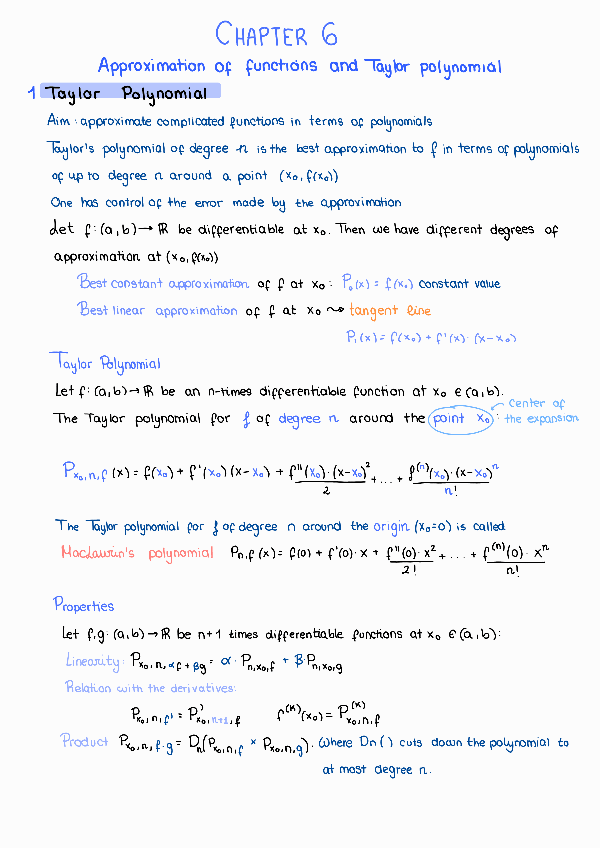 CHAPTER 6
Approximation of functions and Taylor polynomial
1 Taylor Polynomial
Aim: approximate complicated functions in terms of polynomials
Taylor's polynomial of degree n is the best approximation to f in terms of polynomials
of up to degree n around a point (x₀, f(x₀))
One has control of the error made by the approximation
Let f: (a,b) → ℝ be differentiable at x₀. Then we have different degrees of
approximation at (x₀, f(x₀))
Best constant approximation of f at x₀: P₀(x) = f(x₀) constant value
Best linear approximation of f at x₀ ⇝ tangent line
P₁(x) = f(x₀) + f'(x)·(x-x₀)
Taylor Polynomial
Let f: (a,b) → ℝ be an n-times differentiable function at x₀ ∈ (a,b).
center of
The Taylor polynomial for f of degree n around the point x₀: the expansion
P_{x₀,n,f}(x) = f(x₀) + f'(x₀)(x-x₀) + f''(x₀)·(x-x₀)²/2 + ... + f⁽ⁿ⁾(x₀)·(x-x₀)ⁿ/n!
The Taylor polynomial for f of degree n around the origin (x₀=0) is called
MacLawrin's polynomial P_{n,f}(x) = f(0) + f'(0)·x + f''(0)·x²/2! + ... + f⁽ⁿ⁾(0)·xⁿ/n!
Properties
Let f,g: (a,b) → ℝ be n+1 times differentiable functions at x₀ ∈ (a,b):
Linearity: P_{x₀,n,αf+βg} = α·P_{n,x₀,f} + β·P_{n,x₀,g}
Relation with the derivatives:
P_{x₀,n,f'} = P'_{x₀,n+1,f} f⁽ᵏ⁾(x₀) = P⁽ᵏ⁾_{x₀,n,f}
Product P_{x₀,n,f·g} = Dₙ(P_{x₀,n,f} × P_{x₀,n,g}). Where Dn() cuts down the polynomial to
at most degree n.